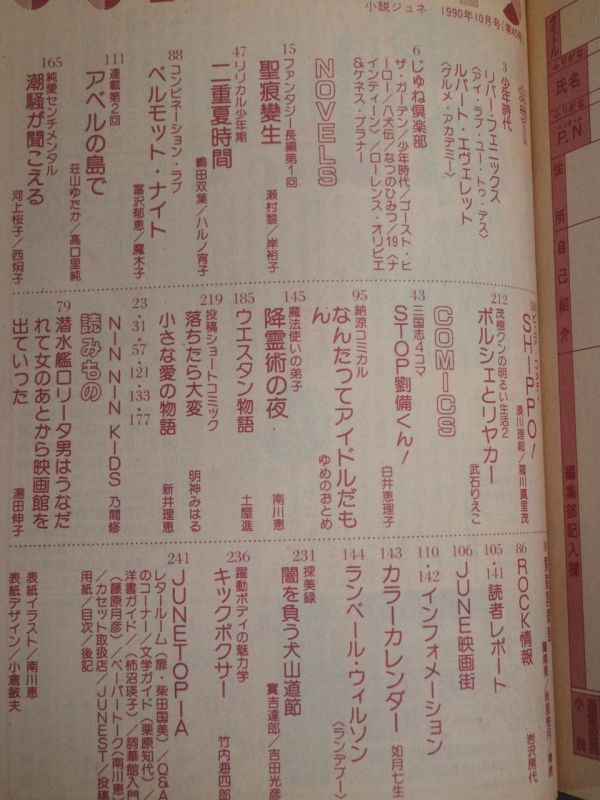 小説ジュネ 1990年10月号(第45号)
3 少年時代
リバー・フェニックス
〈アイ・ラブ・ユー・トゥ・デス〉
ルパート・エヴェレット
〈ゲルメ・アカデミー〉
6 じゅね倶楽部
ザ・ガーデン/少年時代/ゴースト・ヒ
ーロー/八犬伝/なつのひみつ/19〈ナ
インティーン〉/ローレンス・オリビエ
&ケネス・ブラナー
NOVELS
15 ファンタジー長編第1回
聖痕變生
瀬村黎/岸裕子
47 リリカル少年期
二重夏時間
嶋田双葉/ハルノ宵子
88 コンビネーション・ラブ
ベルモット・ナイト
富沢郁恵/魔木子
111 連載第2回
アベルの島で
荘山ゆたか/高口里純
165 純愛センチメンタル
潮騒が聞こえる
河上桜子/西炯子
SHIPPO!
湊川理絵/羅川真里茂
212 茂樹クンの明るい生活2
ポルシェとリヤカー
武石りえこ
COMICS
43 三国志4コマ
STOP劉備くん!
白井恵理子
95 納涼コミカル
なんたってアイドルだも
ん
ゆめのおとめ
145 魔法使いの弟子
降霊術の夜
南川恵
185 ウエスタン物語
土屋進
219 投稿ショートコミック
落ちたら大変
明神みはる
小さな愛の物語
新井理恵
23・31・57・121・133・177
NIN NIN KIDS 乃間修
読みもの
79 潜水艦ロリータ男はうなだ
れて女のあとから映画館を
出ていった
湯田伸子
86 ROCK情報
岩沢房代
105・141 読者レポート
106 JUNE映画街
110・142 インフォメーション
143 カラーカレンダー 如月七生
144 ランベール・ウィルソン
〈ランデブー〉
231 探美録
闇を負う犬山道節
實吉達郎/吉田光彦
236 躍動ボディの魅力学
キックボクサー
竹内海四郎
241 JUNETOPIA
レタールーム(扉・柴田国美)/Q&A
のコーナー/文学ガイド(栗原知代)/
洋書ガイド(柿沼瑛子)/訶華館入門
(藤原月彦)/ペーパートーク(南川恵)
/カセット取扱店/JUNEST/投稿
用紙/目次/後記
表紙イラスト/南川恵
表紙デザイン/小倉敏夫
タイトル
ふりがな
氏名
ふりがな
P.N
住所
自己紹介
編集部記入欄
小説